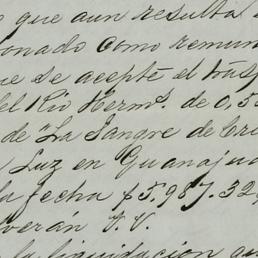 que aun resulta
onado como remun
ue se acepté el trás
del Rio Herms. de 0,5
de "La Sangre de Cri
Luz en Guanajua
la fecha $5.987.32,
verán V. V.
la liquidacion qu